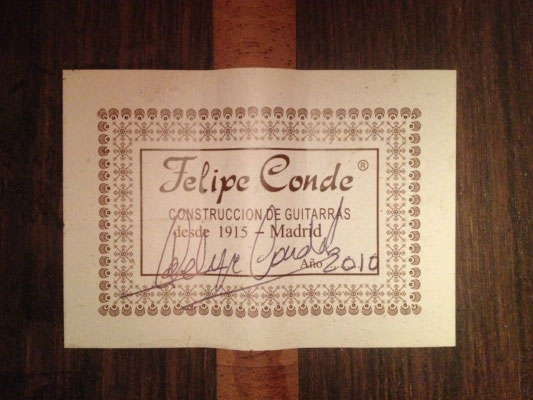 Felipe Conde ®
CONSTRUCCION DE GUITARRAS
desde 1915 – Madrid
Felipe Conde
Año 2010